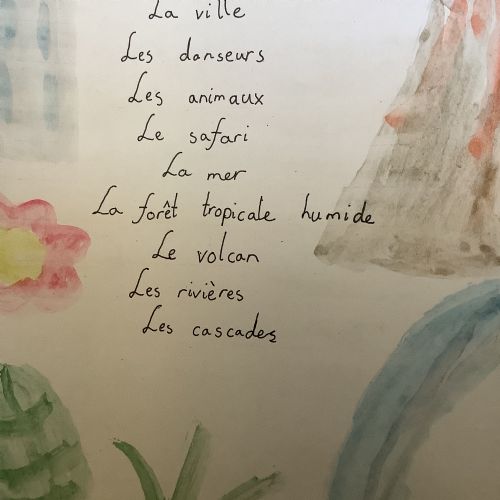 La ville
Les danseurs
Les animaux
Le safari
La mer
La forêt tropicale humide
Le volcan
Les rivières
Les cascades